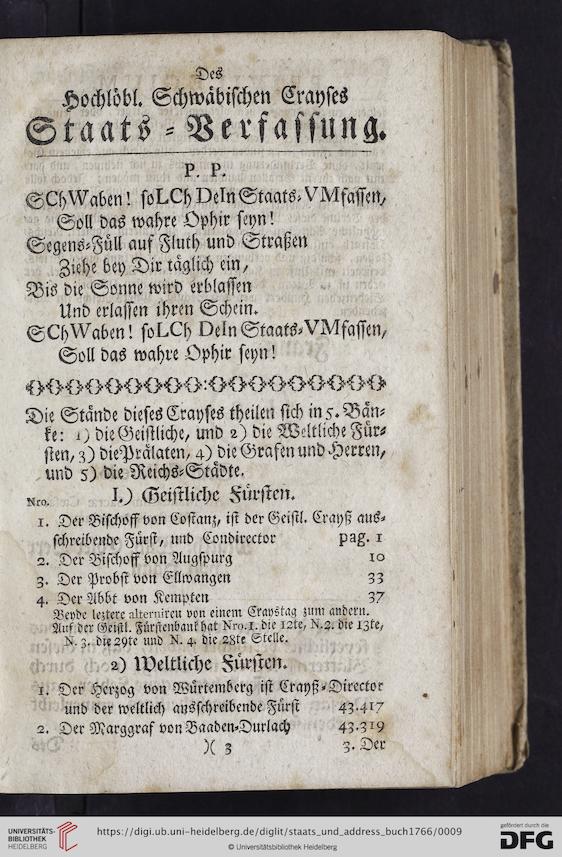 Des
Hochlöbl. Schwäbischen Crayses
Staats-Verfassung.
P. P.
SChWaben! soLCh DeIn Staats-VMfassen,
Soll das wahre Ophir seyn!
Segens-Füll auf Fluth und Straßen
Ziehe bey Dir täglich ein,
Bis die Sonne wird erblassen
Und erlassen ihren Schein.
SChWaben! soLCh DeIn Staats-VMfassen,
Soll das wahre Ophir seyn!
Die Stände dieses Crayses theilen sich in 5. Bän-
ke: 1) die Geistliche, und 2) die Weltliche Für-
sten, 3) die Prälaten, 4) die Grafen und Herren,
und 5) die Reichs-Städte.
Nro. I.) Geistliche Fürsten.
1. Der Bischoff von Costanz, ist der Geistl. Crayß aus-
schreibende Fürst, und Condirector pag. 1
2. Der Bischoff von Augspurg 10
3. Der Probst von Ellwangen 33
4. Der Abbt von Kempten 37
Beyde leztere alterniren von einem Craystag zum andern.
Auf der Geistl. Fürstenbank hat Nro. 1. die 12te, N. 2. die 13te,
N. 3. die 29te und N. 4. die 28te Stelle.
2) Weltliche Fürsten.
1. Der Herzog von Würtemberg ist Crayß-Director
und der weltlich ausschreibende Fürst 43.417
2. Der Marggraf von Baaden-Durlach 43.319
)( 3 3. Der
UNIVERSITÄTS-
BIBLIOTHEK
HEIDELBERG
https://digi.ub.uni-heidelberg.de/diglit/staats_und_address_buch1766/0009
© Universitätsbibliothek Heidelberg
gefördert durch die
DFG